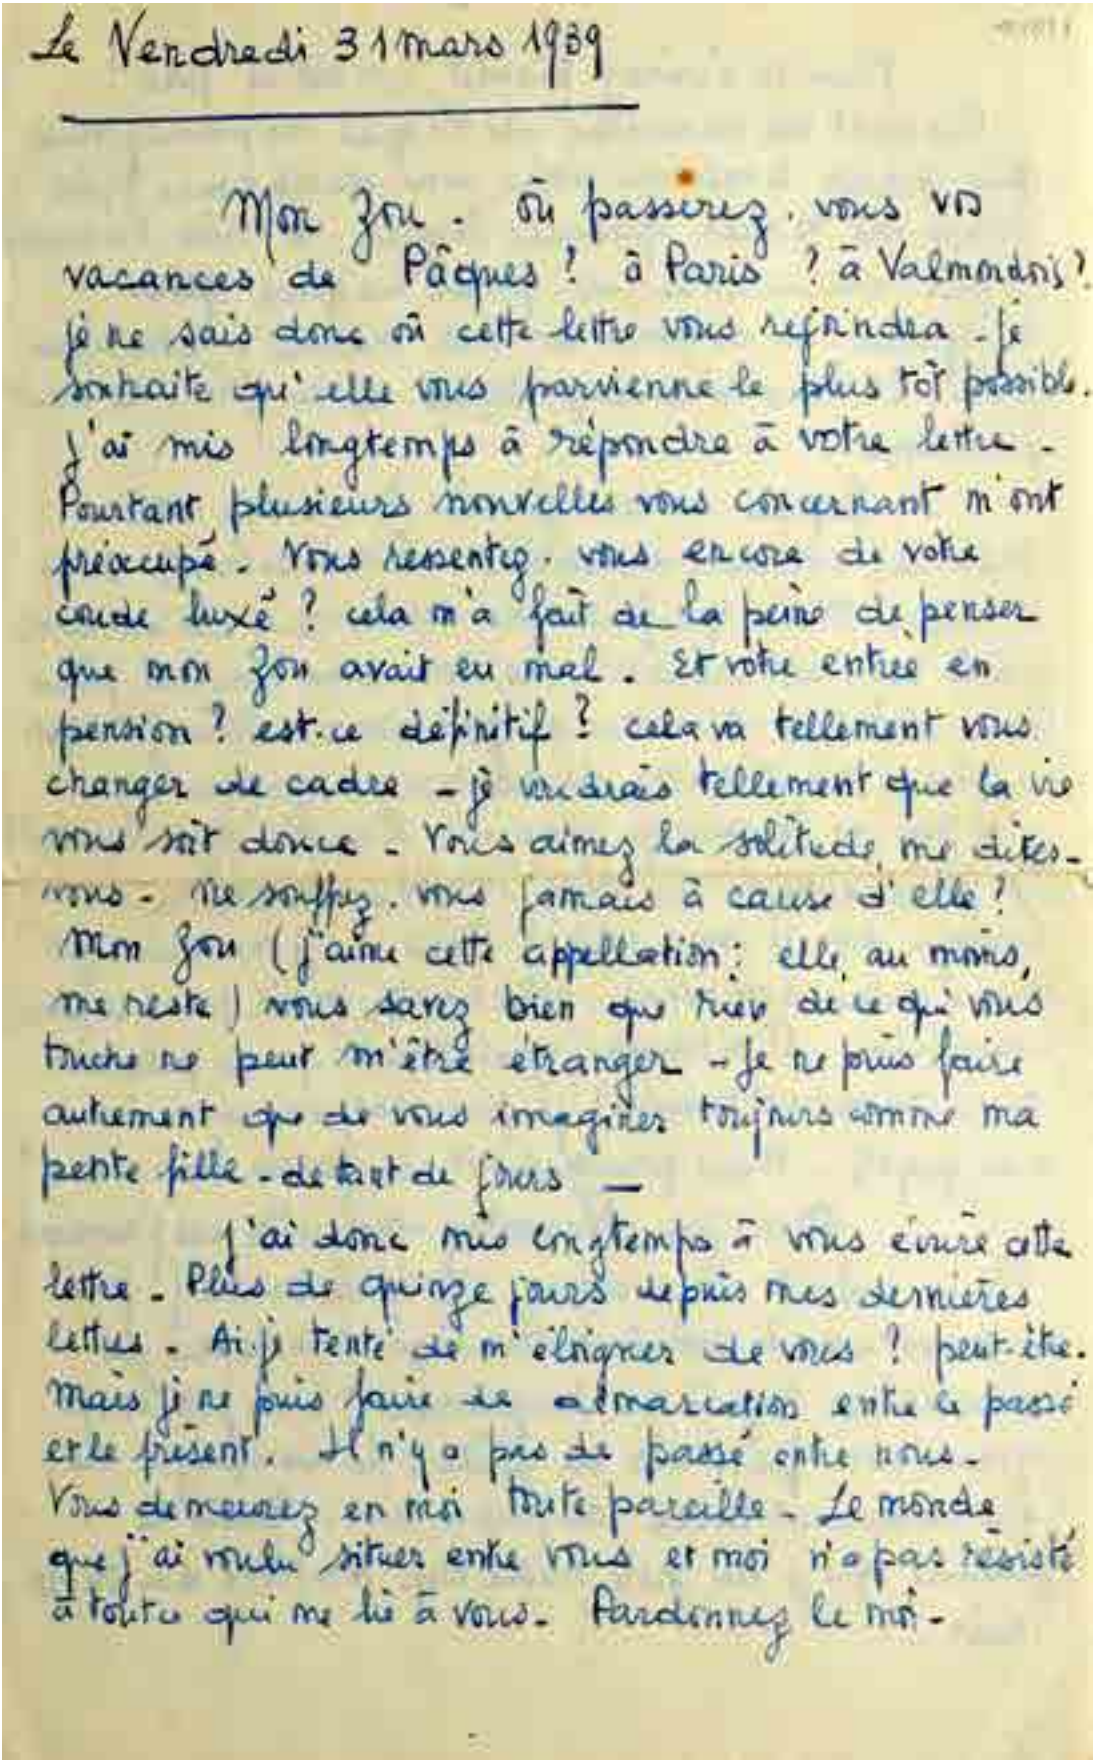 Le Vendredi 31 mars 1939
Mon Zou. Où passerez-vous vos
vacances de Pâques ? à Paris ? à Valmondois ?
je ne sais donc où cette lettre vous rejoindra - je
souhaite qu'elle vous parvienne le plus tôt possible.
J'ai mis longtemps à répondre à votre lettre -
Pourtant, plusieurs nouvelles vous concernant m'ont
préoccupé. Vous ressentez-vous encore de votre
coude luxé ? cela m'a fait de la peine de penser
que mon Zou avait eu mal. Et votre entrée en
pension ? est-ce définitif ? cela va tellement vous
changer de cadre - je voudrais tellement que la vie
vous soit douce - Vous aimez la solitude, me dites-
vous - ne souffrez-vous jamais à cause d'elle ?
Mon Zou (j'aime cette appellation : elle, au moins,
me reste) vous savez bien que rien de ce qui vous
touche ne peut m'être étranger - Je ne puis faire
autrement que de vous imaginer toujours comme ma
petite fille - de tant de jours —
J'ai donc mis longtemps à vous écrire cette
lettre - Plus de quinze jours depuis mes dernières
lettres - Ai-je tenté de m'éloigner de vous ? peut-être.
Mais je ne puis faire de démarcation entre le passé
et le présent. Il n'y a pas de passé entre nous -
Vous demeurez en moi toute pareille - Le monde
que j'ai voulu situer entre vous et moi n'a pas résisté
à tout ce qui me lie à vous - Pardonnez le moi -